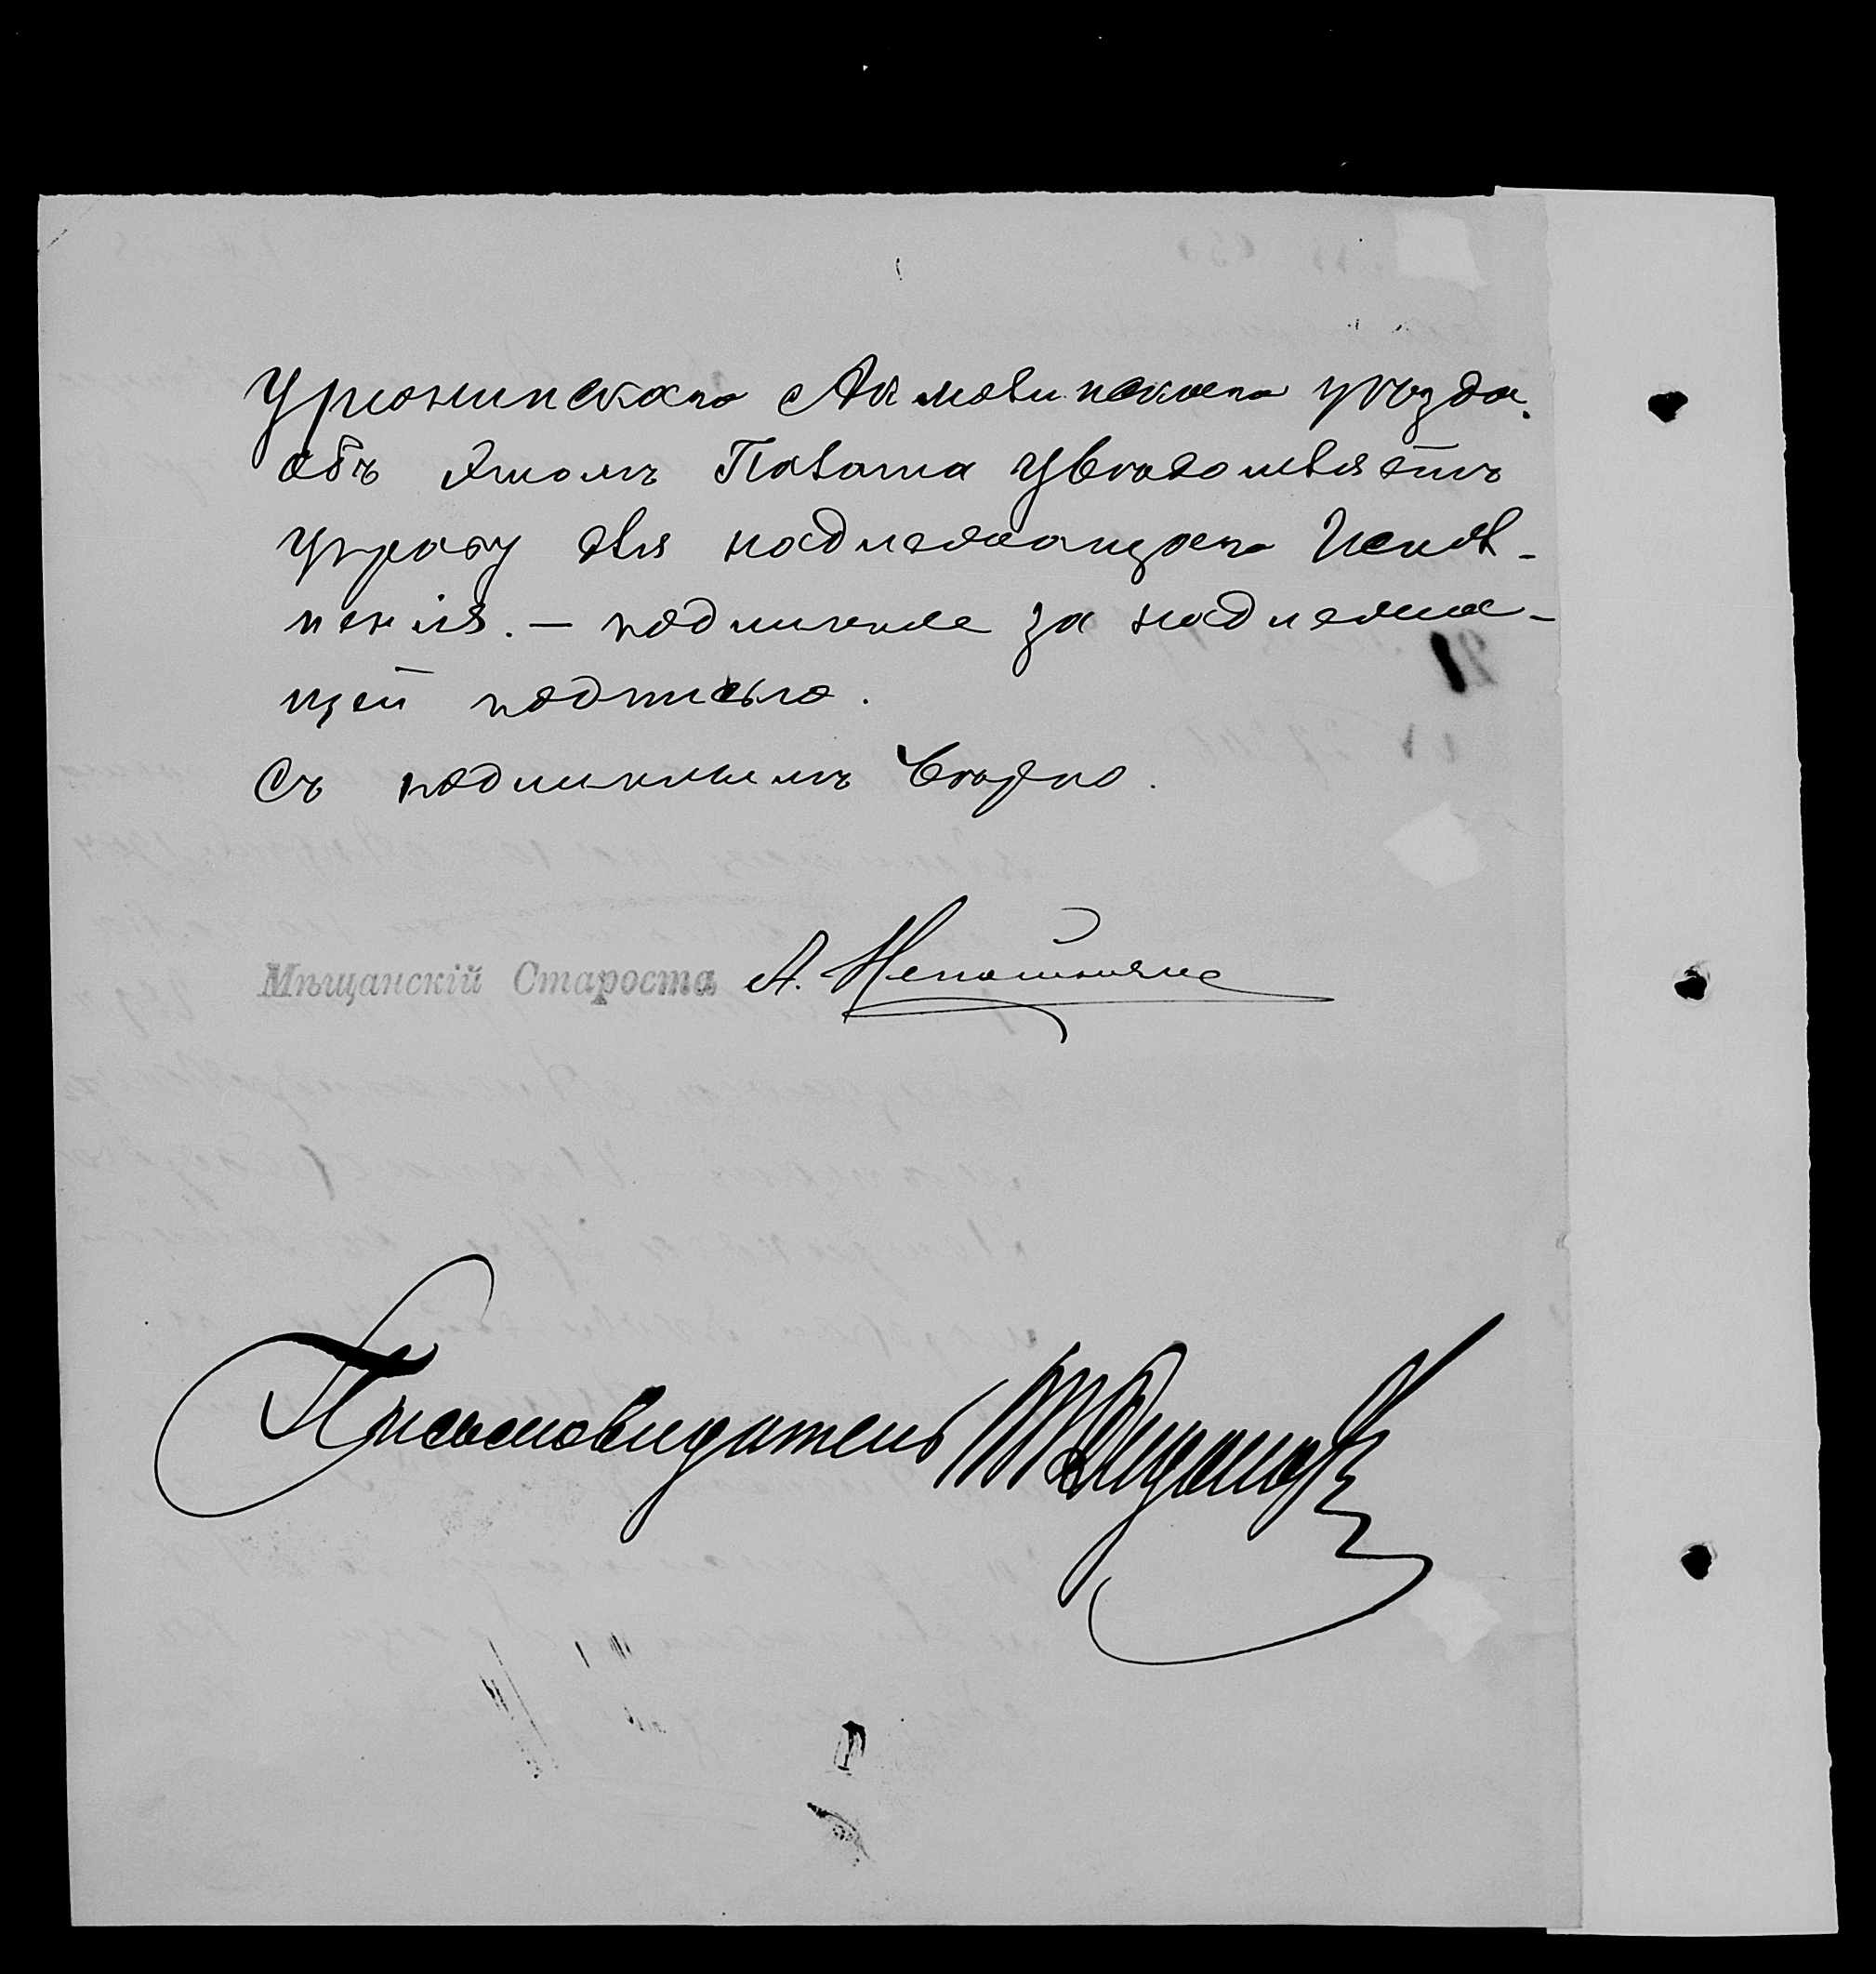 Урюнинскаго Акмолинскаго уѣзда.
объ этомъ Палата увѣдомляетъ
управу для надлежащаго Испол-
ненія. — подлинное за надлежа-
щей подписью.
Съ подлиннымъ вѣрно.
Мѣщанскій Староста А.
Письмоводитель